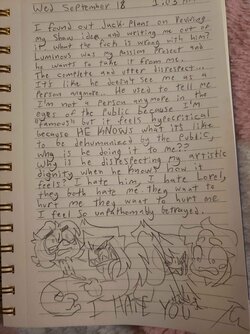 Wed September 18 1:03 AM
I found out Jack Plans on Reviving
my show idea and writing me out of
it what the fuck is wrong with him?
Luminous was my Passion Project and
he wants to take it from me.
The complete and utter disrespect...
It's like he doesn't see me as a
Person anymore... He used to tell me
I'm not a person anymore in the
eyes of the public because I'm
famous but it feels hypocritical
because HE KNOWS what it's like
to be dehumanized by the Public,
why is he doing it to me??
Why is he disrespecting my artistic
dignity when he knows how it
feels? I hate him, I hate Lorel,
they both hate me They want to
hurt me They want to hurt me
I feel so unfathomably betrayed.
I HATE YOU